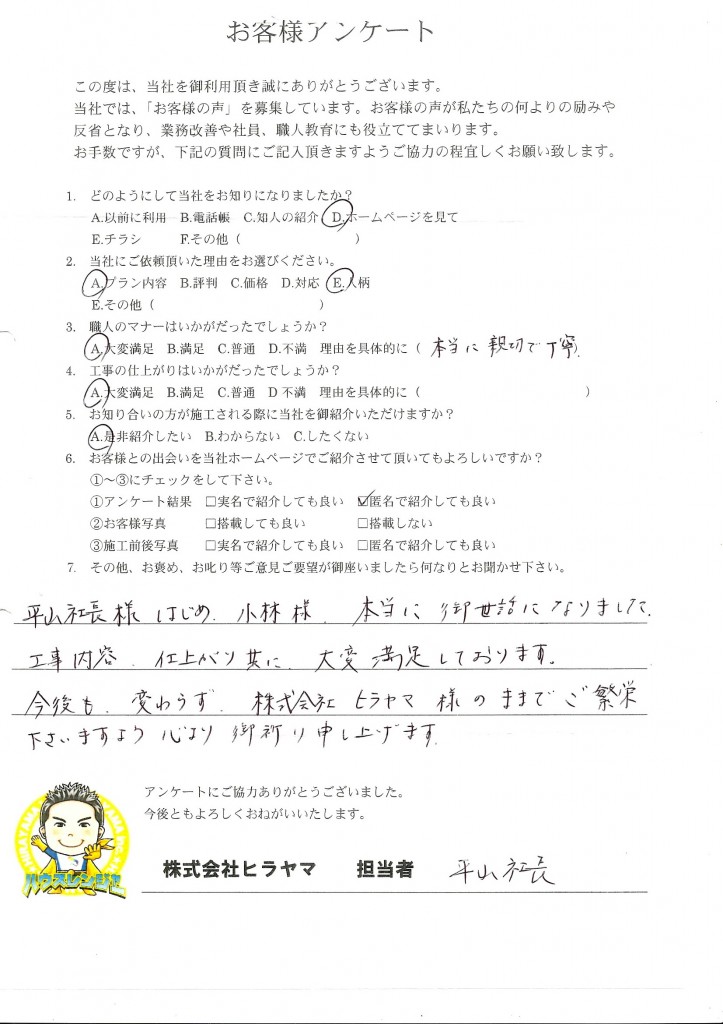 お客様アンケート
この度は、当社を御利用頂き誠にありがとうございます。
当社では、「お客様の声」を募集しています。お客様の声が私たちの何よりの励みや
反省となり、業務改善や社員、職人教育にも役立ててまいります。
お手数ですが、下記の質問にご記入頂きますようご協力の程宜しくお願い致します。
1. どのようにして当社をお知りになりましたか？
A.以前に利用 B.電話帳 C.知人の紹介 D.ホームページを見て
E.チラシ F.その他（ ）
2. 当社にご依頼頂いた理由をお選びください。
A.プラン内容 B.評判 C.価格 D.対応 E.人柄
E.その他（ ）
3. 職人のマナーはいかがだったでしょうか？
A.大変満足 B.満足 C.普通 D.不満 理由を具体的に（ 本当に親切で丁寧）
4. 工事の仕上がりはいかがだったでしょうか？
A.大変満足 B.満足 C.普通 D 不満 理由を具体的に（ ）
5. お知り合いの方が施工される際に当社を御紹介いただけますか？
A.是非紹介したい B.わからない C.したくない
6. お客様との出会いを当社ホームページでご紹介させて頂いてもよろしいですか？
①〜③にチェックをして下さい。
①アンケート結果 □実名で紹介しても良い ☑匿名で紹介しても良い
②お客様写真 □搭載しても良い □搭載しない
③施工前後写真 □実名で紹介しても良い □匿名で紹介しても良い
7. その他、お褒め、お叱り等ご意見ご要望が御座いましたら何なりとお聞かせ下さい。
平山社長様はじめ、小林様、本当に御世話になりました。
工事内容、仕上がり共に、大変満足しております。
今後も、変わらず、株式会社ヒラヤマ様のままでご繁栄
下さいますよう心より御祈り申し上げます。
アンケートにご協力ありがとうございました。
今後ともよろしくおねがいいたします。
ハウスレンジャー
株式会社ヒラヤマ 担当者 平山社長